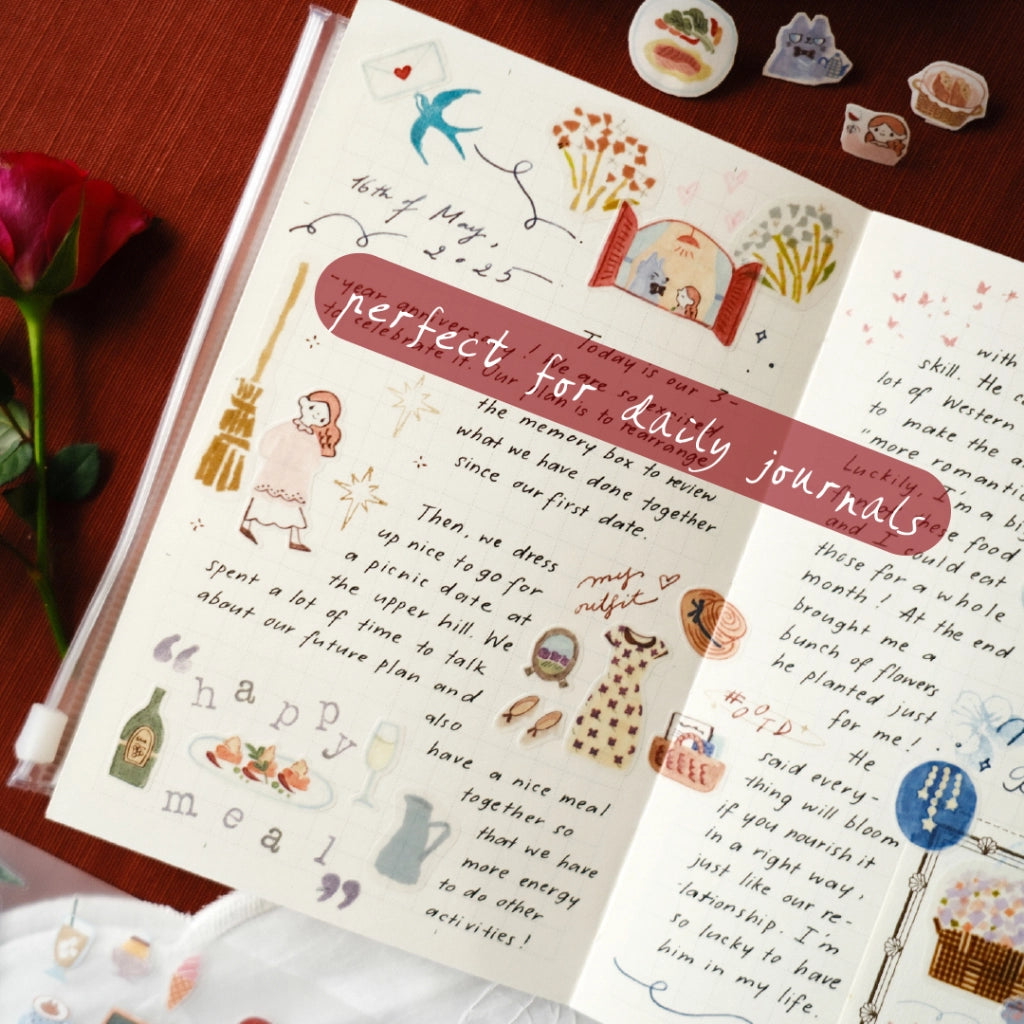 16th of May,
2025
Today is our 3-
-year anniversary! We are so excited
to celebrate it. Our plan is to rearrange
the memory box to review
what we have done together
since our first date.
perfect for daily journals
Then, we dress
up nice to go for
a picnic date at
the upper hill. We
spent a lot of time to talk
about our future plan and
also
have a nice meal
together so
that we have
more energy
to do other
activities!
my
outfit
“happy
meal”
#OOTD
with
skill. He c
lot of Western
to make the a
"more romantic
Luckily, I'm a big
these food
and I could eat
those for a whole
month! At the end
brought me a
bunch of flowers
he planted just
for me!
He
said every-
thing will bloom
if you nourish it
in a right way,
just like our re-
-lationship. I'm
so lucky to have
him in my life.